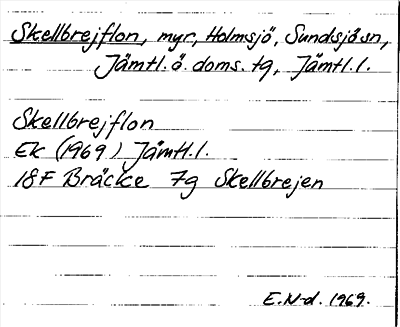 Skellbrejflon, myr, Holmsjö, Sundsjö sn,
Jämtl. ö. doms. tg, Jämtl. l.
Skellbrejflon
Ek (1969) Jämtl. l.
18F Bräcke 7g Skellbrejen
E. N-d. 1969.